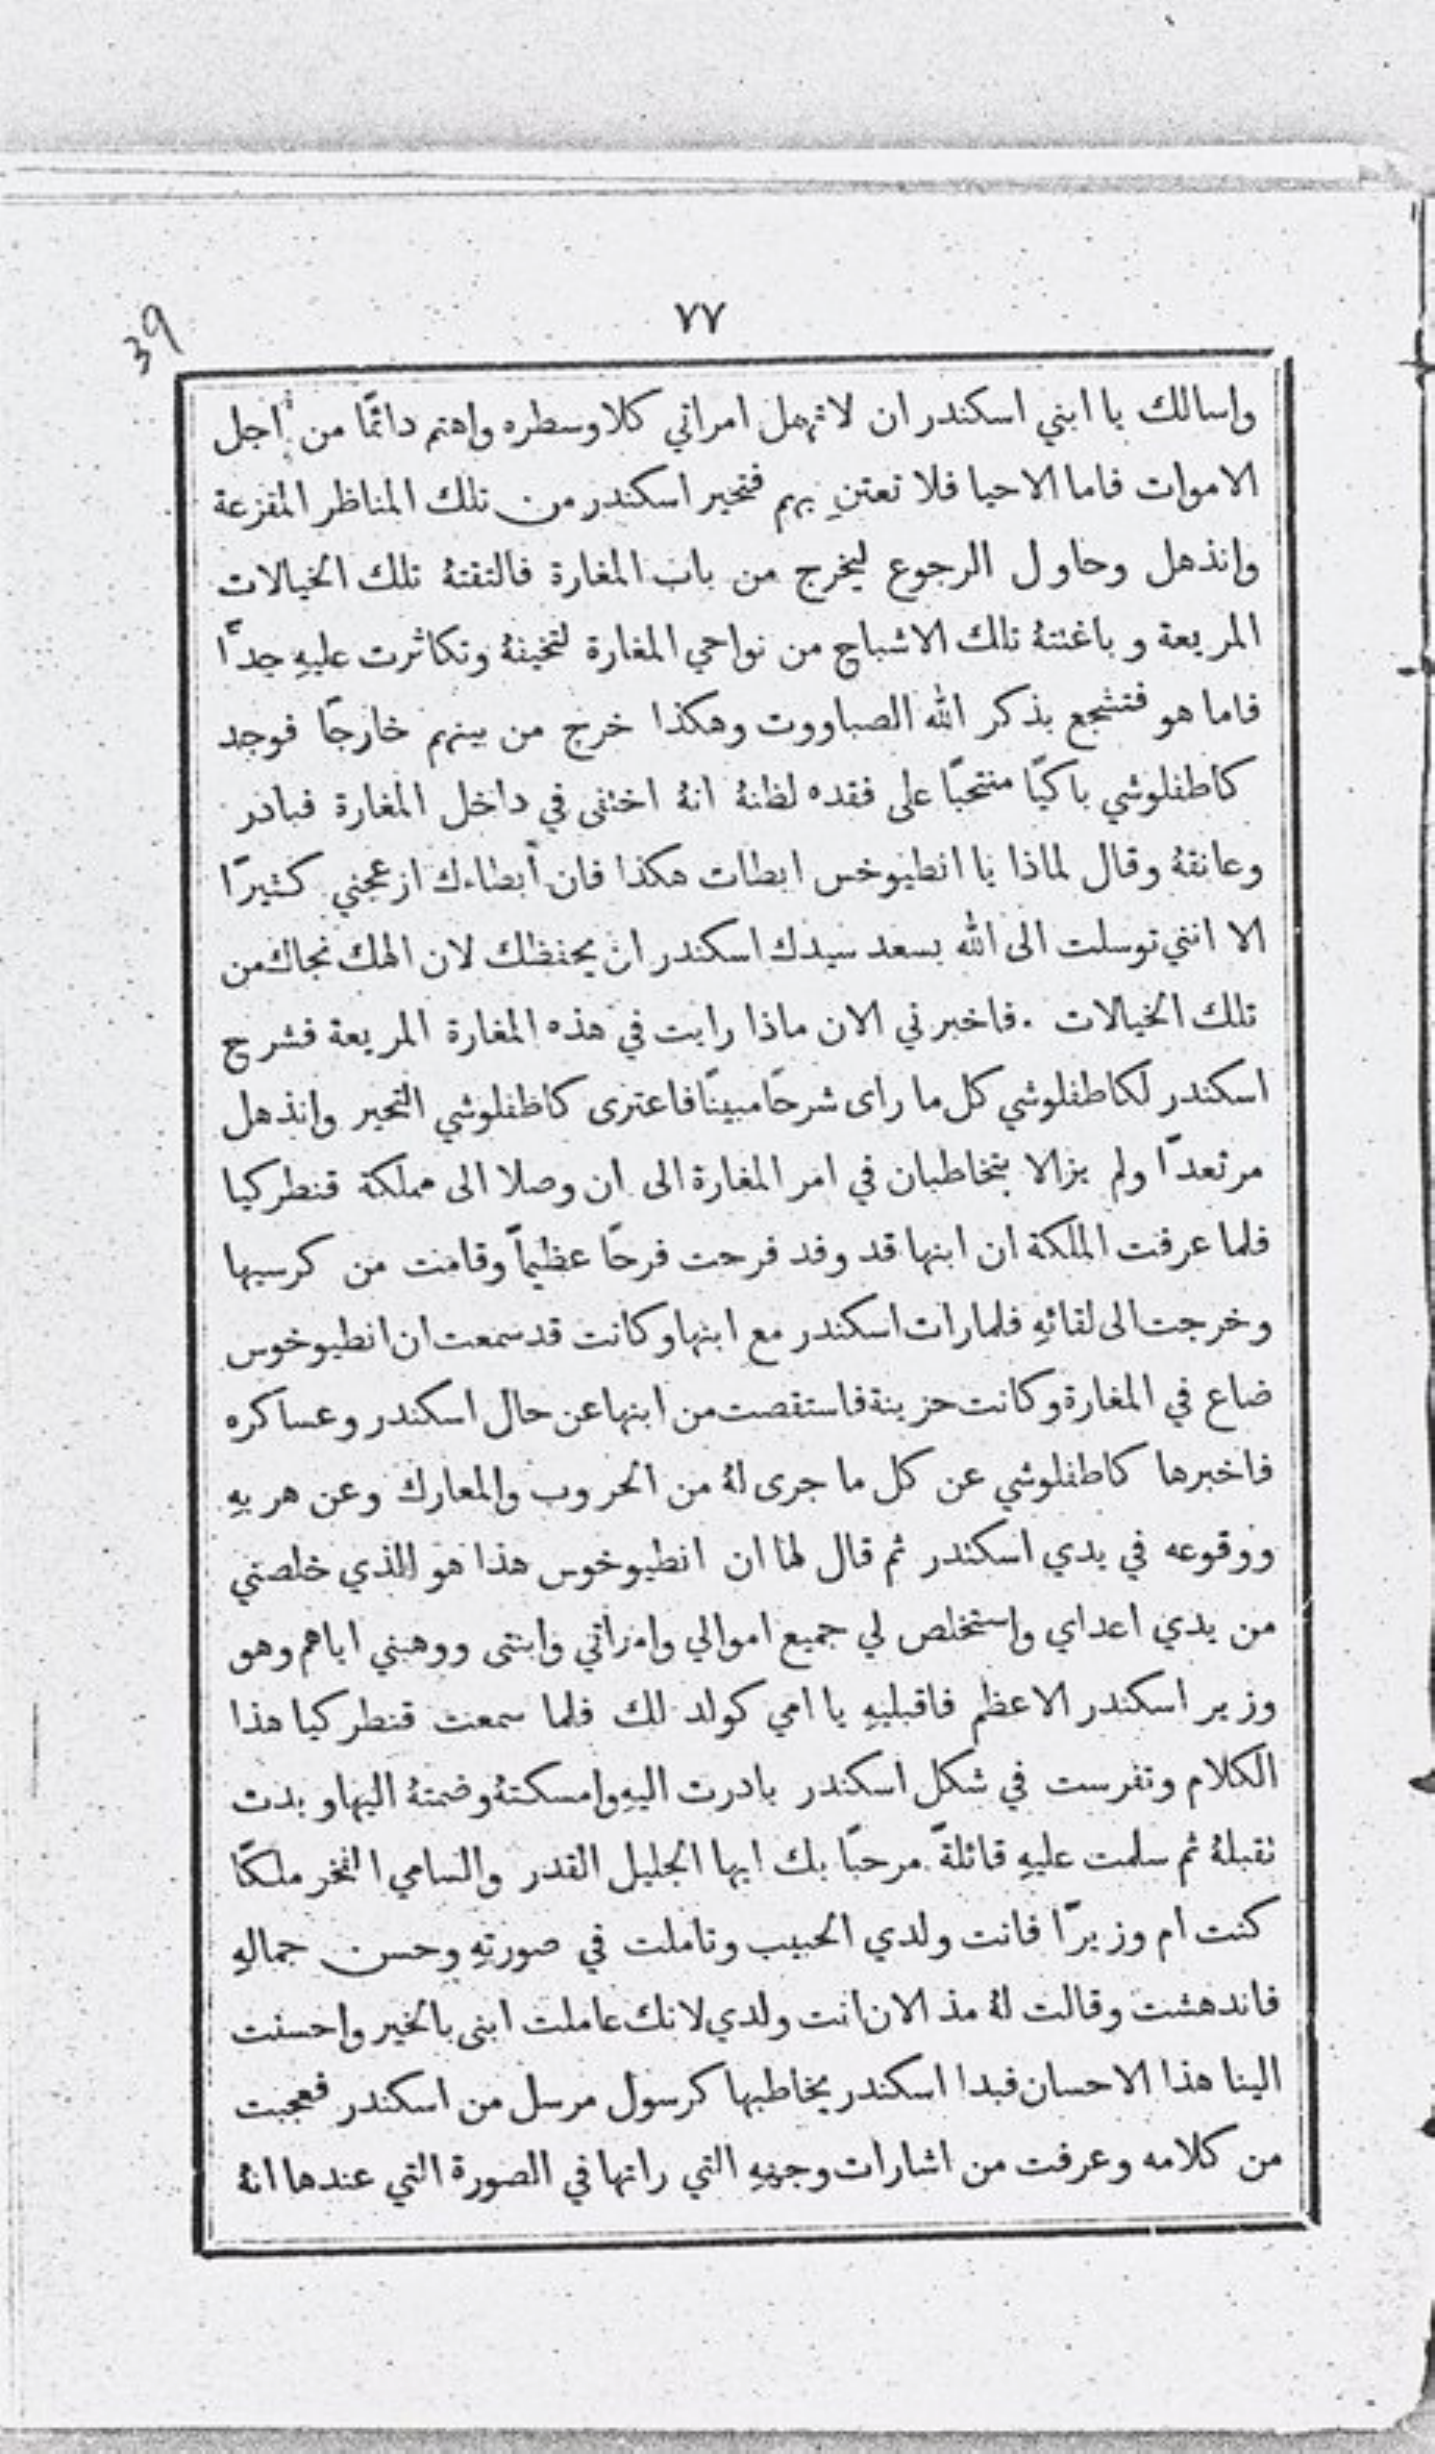 ٧٧
39
واسالك يا ابني اسكندر ان لا تهمل امراتي كلاوسطره واهتم دائمًا من اجل
الاموات فاما الاحيا فلا تعتنِ بهم فتحير اسكندر من تلك المناظر المفزعة
وانذهل وحاول الرجوع ليخرج من باب المغارة فالتقتهُ تلك الخيالات
المريعة وباغتتهُ تلك الاشباح من نواحي المغارة لتخيفهُ وتكاثرت عليهِ جدًّا
فاما هو فتشجع بذكر الله الصباووت وهكذا خرج من بينهم خارجًا فوجد
كاطفلوشي باكيًا منتحبًا على فقده لظنهُ انهُ اختفى في داخل المغارة فبادر
وعانقهُ وقال لماذا يا انطيوخس ابطات هكذا فان أبطاءك ازعجني كثيرًا
الا انني توسلت الى الله بسعد سيدك اسكندر ان يحفظك لان الهك نجاك من
تلك الخيالات . فاخبرني الان ماذا رايت في هذه المغارة المريعة فشرح
اسكندر لكاطفلوشي كل ما راى شرحًا مبينًا فاعترى كاطفلوشي التحير وانذهل
مرتعدًا ولم يزالا يتخاطبان في امر المغارة الى ان وصلا الى مملكة قنطركيا
فلما عرفت الملكة ان ابنها قد وفد فرحت فرحًا عظيمًا وقامت من كرسيها
وخرجت الى لقائهِ فلما رات اسكندر مع ابنها وكانت قد سمعت ان انطيوخوس
ضاع في المغارة وكانت حزينة فاستقصت من ابنها عن حال اسكندر وعساكره
فاخبرها كاطفلوشي عن كل ما جرى لهُ من الحروب والمعارك وعن هربهِ
ووقوعه في يدي اسكندر ثم قال لها ان انطيوخوس هذا هو الذي خلصني
من يدي اعداي واستخلص لي جميع اموالي وامراتي وابنتى ووهبني اياهم وهو
وزير اسكندر الاعظم فاقبليهِ يا امي كولد لك فلما سمعت قنطركيا هذا
الكلام وتفرست في شكل اسكندر بادرت اليهِ وامسكتهُ وضمتهُ اليها وبدت
تقبلهُ ثم سلمت عليهِ قائلةً مرحبًا بك ايها الجليل القدر والسامي الفخر ملكًا
كنت ام وزيرًا فانت ولدي الحبيب وتاملت في صورتهِ وحسن جمالهِ
فاندهشت وقالت لهُ مذ الان انت ولدي لانك عاملت ابنى بالخير واحسنت
الينا هذا الاحسان فبدا اسكندر يخاطبها كرسول مرسل من اسكندر فعجبت
من كلامه وعرفت من اشارات وجههِ التي راتها في الصورة التي عندها انهُ